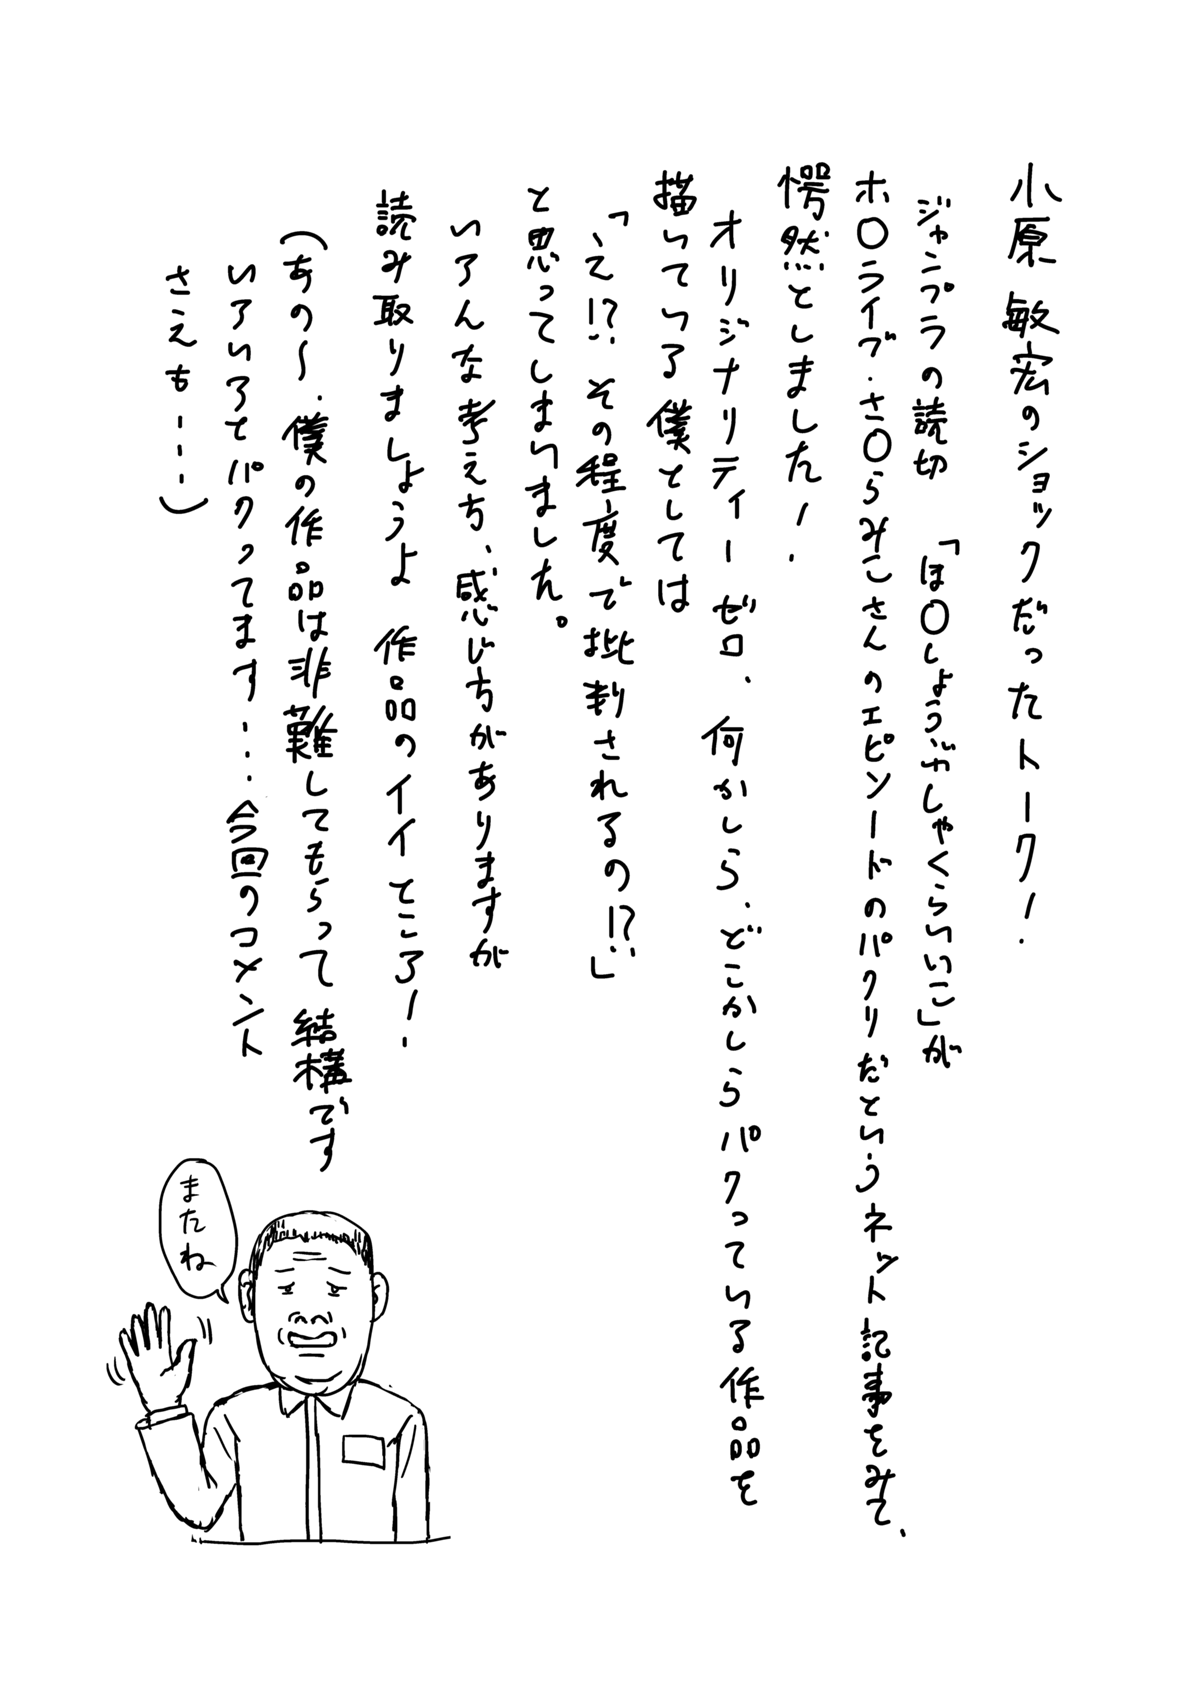 小原敏宏のショックだったトーク!
ジャンプラの読切 「ほ〇しょうがしゃくらいこ」が
ホ〇ライブ・さ〇らみこさんのエピソードのパクリだというネット記事をみて、
愕然としました!
オリジナリティーゼロ、何かしら、どこかしらパクっている作品を
描いている僕としては
「え!?その程度で批判されるの!?」
と思ってしまいました。
いろんな考え方、感じ方がありますが
読み取りましょうよ 作品のイイところ!
(あの〜、僕の作品は非難してもらって結構です
いろいろとパクってます・・・今回のコメント
さえも・・・)
またね